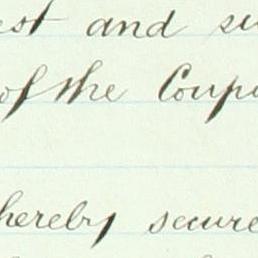 est and su
of the Coupo
hereby secure